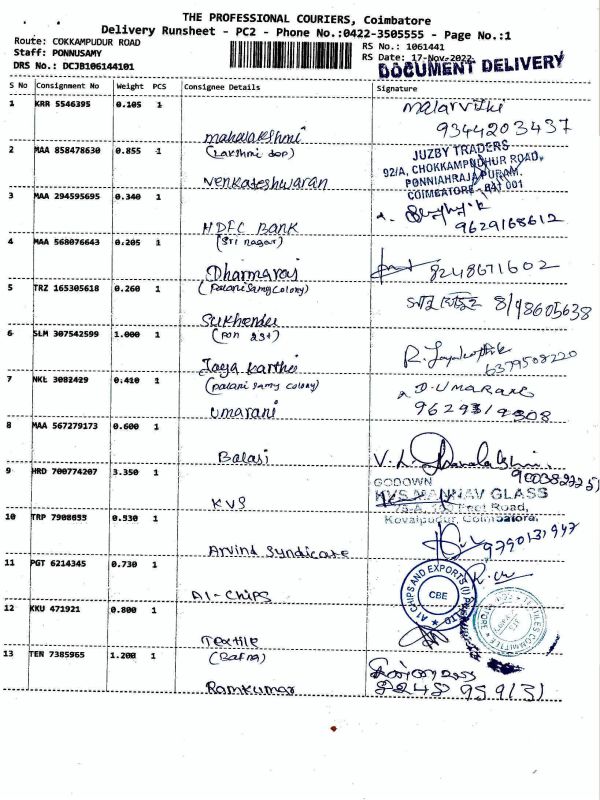 THE PROFESSIONAL COURIERS, Coimbatore
Delivery Runsheet - PC2 - Phone No.:0422-3505555 - Page No.:1
Route: COKKAMPUDUR ROAD
Staff: PONNUSAMY
DRS No.: DCJB106144101
RS No.: 1061441
RS Date: 17-Nov-2022
DOCUMENT DELIVERY
S No Consignment No Weight PCS Consignee Details Signature
1 KRR 5546395 0.105 1
malarvithi
9344203437
mahalakshmi
2 MAA 858478630 0.855 1 (Lakshmi dop)
JUZBY TRADERS
92/A, CHOKKAMPUDHUR ROAD,
PONNIAHRAJAPURAM,
COIMBATORE - 641 001
Venkateshwaran
3 MAA 294595695 0.340 1
9629168612
HDFC BANK
4 MAA 568076643 0.205 1 (Sri nagar)
Dharmaraj
8248671602
5 TRZ 165305618 0.260 1 (palani Samy Colony)
8/98605638
Sukhendu
6 SLM 307542599 1.000 1
6379508220
Jaya Karthi
7 NKL 3082429 0.410 1 (palani samy colony)
D. UMARANI
Umarani
9629319308
8 MAA 567279173 0.600 1
Balaji
9 HRD 700774207 3.350 1
GODOWN
KVS MANNAV GLASS
Feet Road,
Kovaipudur, Coimbatore.
KVS
10 TRP 7908655 0.530 1
9790131947
Arvind Syndicate
11 PGT 6214345 0.730 1
A1 CHIPS AND EXPORTS (I) P LTD
CBE
A1-Chips
12 KKU 471921 0.800 1
TEXTILES COMMITTEE
Textile
13 TEN 7385965 1.200 1 (Bafna)
Ramkumar